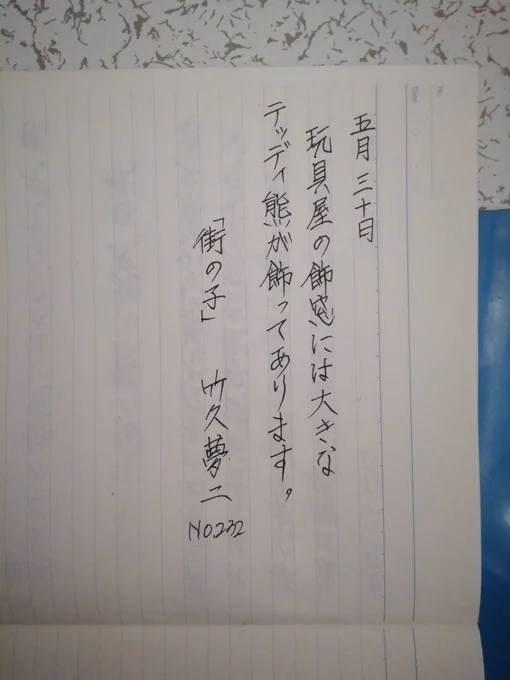 五月三十日
玩具屋の飾窓には大きな
テッディ熊が飾ってあります。
「街の子」 竹久夢二
NO.232